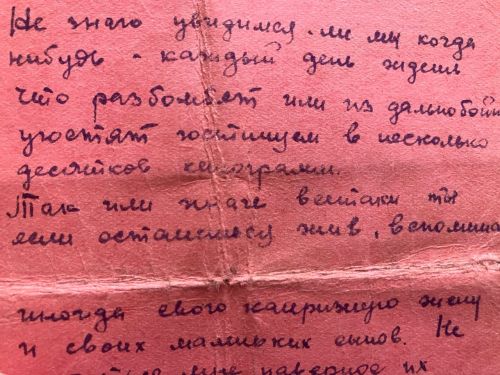 Не знаю увидимся ли мы когда
нибудь - каждый день ждешь
что разбомбят или из дальнобойн
угостят гостинцем в несколько
десятков килограмм.
Так или иначе всетаки ты
если останешься жив, вспомина
иногда свого капризную жену
и своих маленьких сынов. Не
мне наверное их